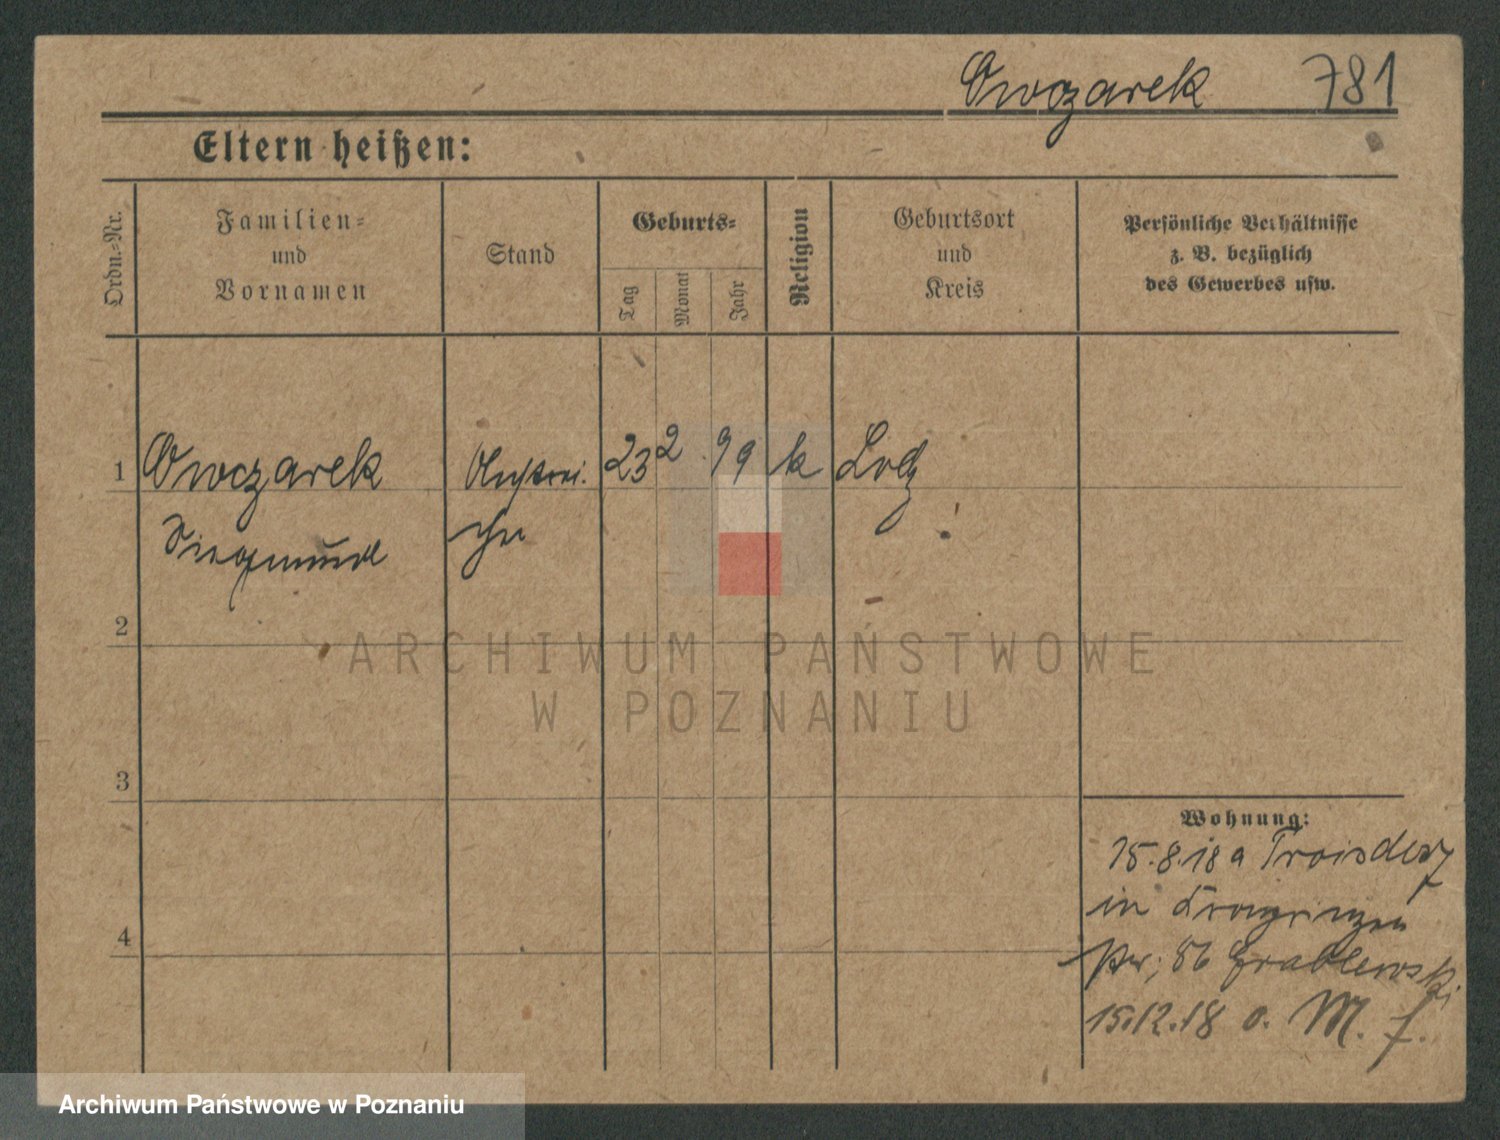 Owczarek 781
Eltern heißen:
Ordn.-Nr.
Familien-
und
Vornamen
Stand
Geburts-
Tag
Monat
Jahr
Religion
Geburtsort
und
Kreis
Persönliche Verhältnisse
z. B. bezüglich
des Gewerbes usw.
1 Owczarek 23 2 99 k Lodz
Siegmund
2
3
4
Wohnung:
15.8.18 a Troisdorf
in
86 Grablewski
15.12.18 o. M. f.
ARCHIWUM PAŃSTWOWE
W POZNANIU
Archiwum Państwowe w Poznaniu